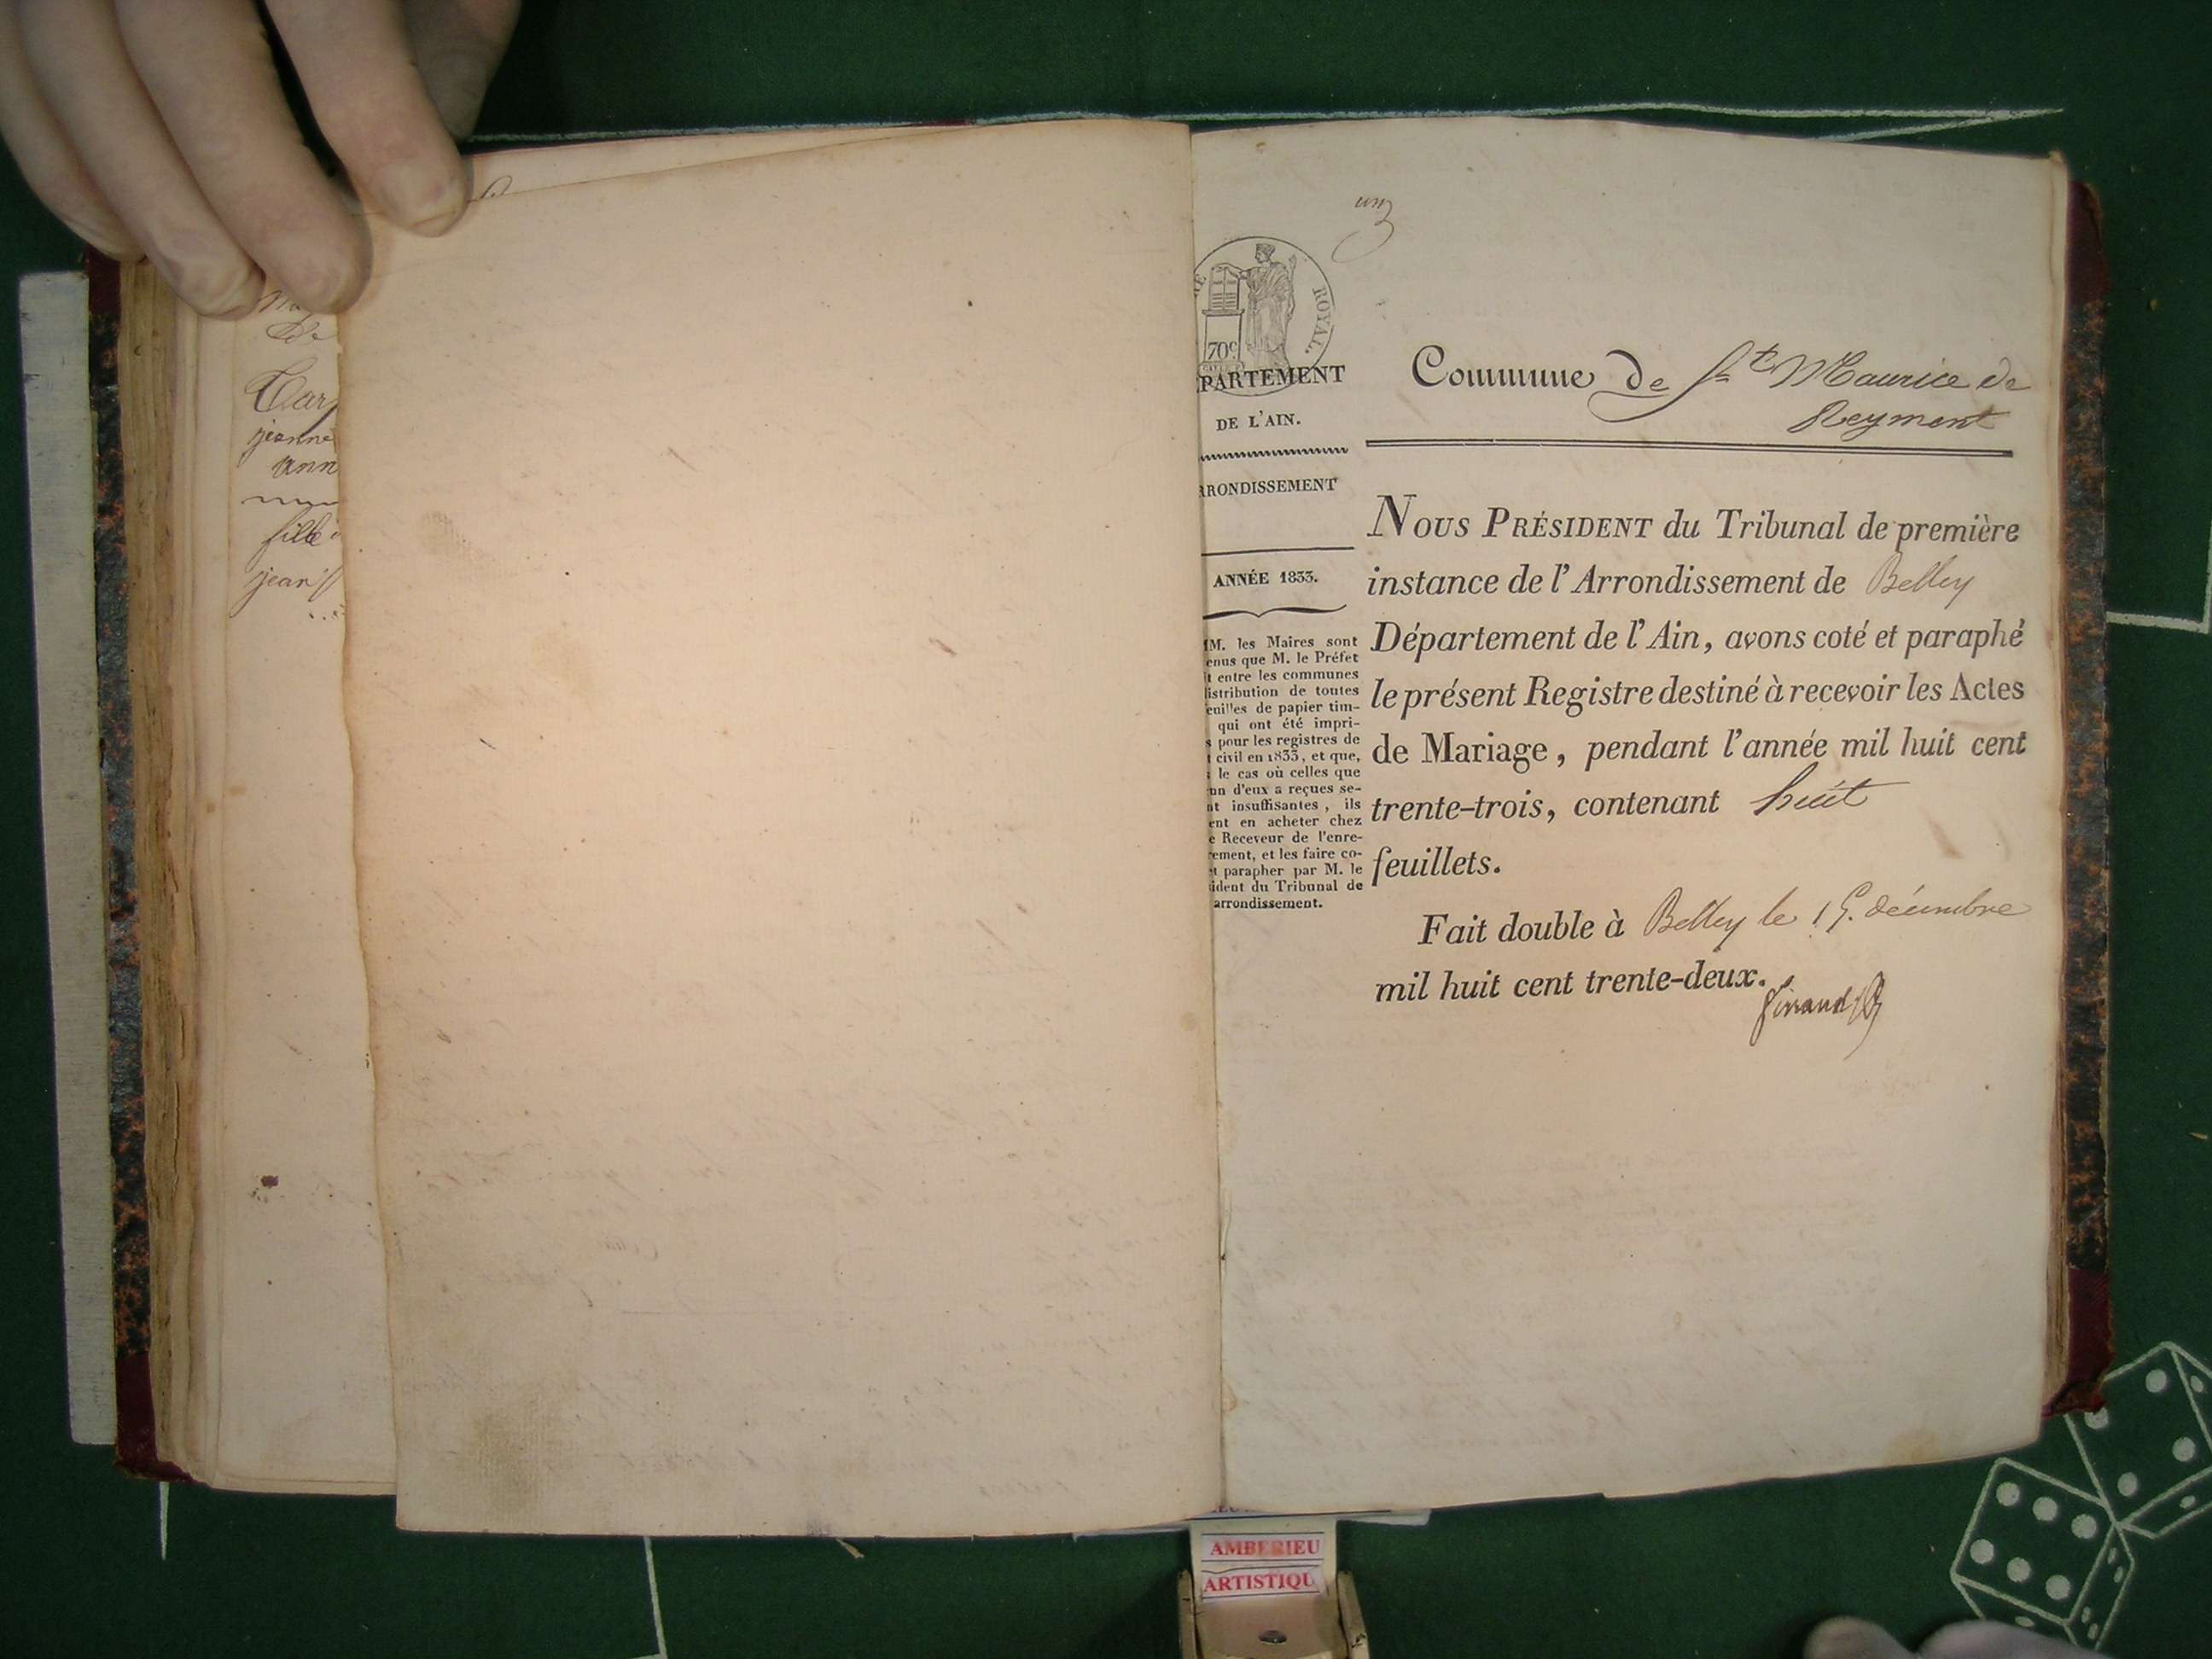 Car
jeanne
ann
fille
jean
un
ROYAL.
70c
PARTEMENT
DE L'AIN.
RRONDISSEMENT
ANNÉE 1833.
M. les Maires sont
enus que M. le Préfet
t entre les communes
distribution de toutes
feuilles de papier tim-
qui ont été impri-
s pour les registres de
t civil en 1833, et que,
s le cas où celles que
un d'eux a reçues se-
nt insuffisantes, ils
ent en acheter chez
e Receveur de l'enre-
rement, et les faire co-
et parapher par M. le
sident du Tribunal de
arrondissement.
Commune de St Maurice de
Reyment
NOUS PRÉSIDENT du Tribunal de première
instance de l'Arrondissement de Belley
Département de l'Ain, avons coté et paraphé
le présent Registre destiné à recevoir les Actes
de Mariage, pendant l'année mil huit cent
trente-trois, contenant huit
feuillets.
Fait double à Belley le 15. décembre
mil huit cent trente-deux.
AMBERIEU
ARTISTIQU